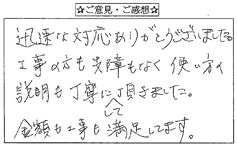 ☆ご意見・ご感想☆
迅速な対応ありがとうございました。
工事の方も支障もなく使い方の
説明も丁寧にして頂きました。
金額も工事も満足してます。